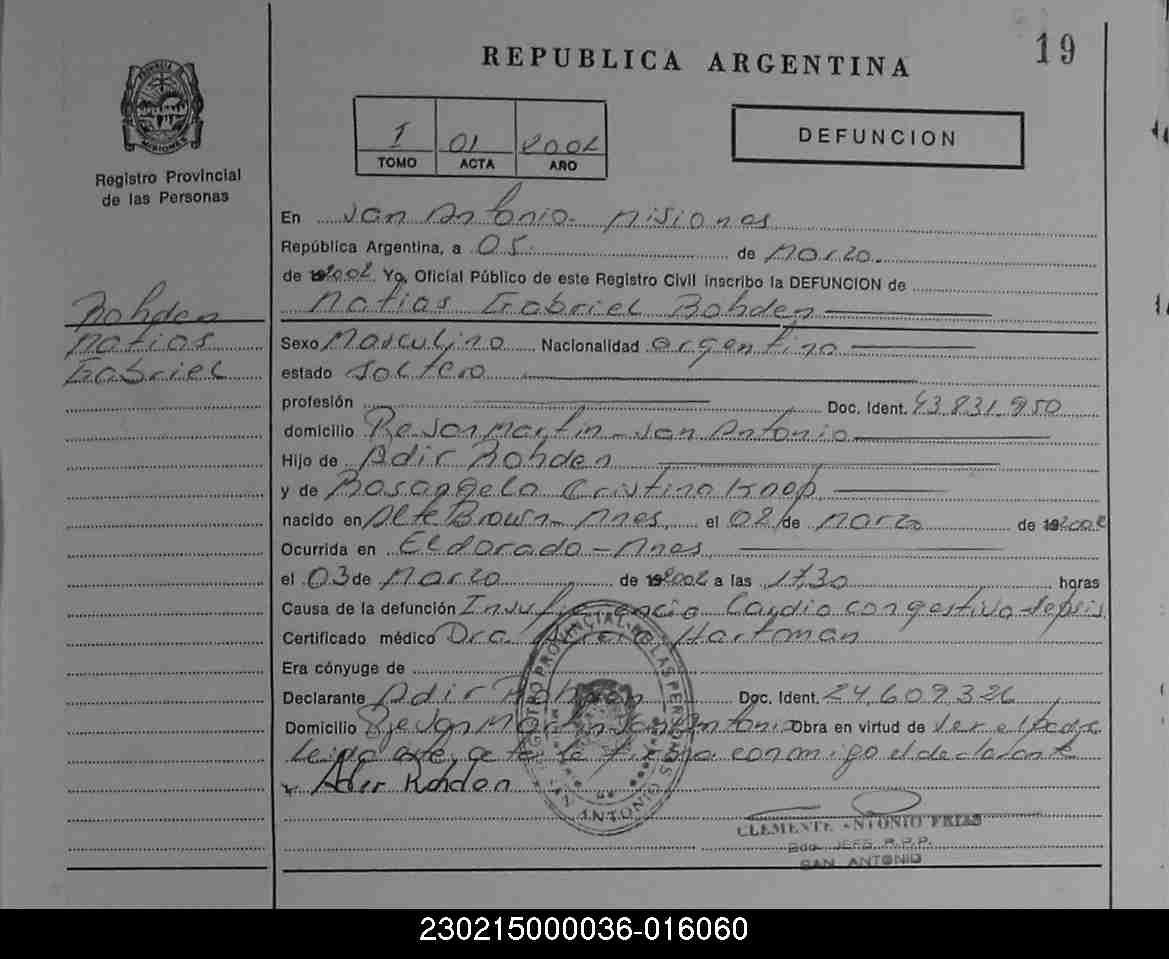 REPUBLICA ARGENTINA
19
PROVINCIA
MISIONES
Registro Provincial
de las Personas
I 01 2002
TOMO ACTA AÑO
DEFUNCION
En San Antonio - Misiones
República Argentina, a 05 de Marzo
de 2002 Yo, Oficial Público de este Registro Civil inscribo la DEFUNCION de
Matias Gabriel Rohden
Rohden
Matias
Gabriel
Sexo Masculino Nacionalidad argentina
estado Soltero
profesión Doc. Ident. 43.831.950
domicilio San Martin - San Antonio
Hijo de Adir Rohden
y de Rosangela Cristina Knop
nacido en Alte Brown - Mnes, el 02 de Marzo de 2002
Ocurrida en Eldorado - Mnes
el 03 de Marzo de 2002 a las 17,30 horas
Causa de la defunción Insuficiencia Cardio congestiva - sepsis
Certificado médico Dra. Hartman
Era cónyuge de
Declarante Adir Rohden Doc. Ident. 24.609.326
Domicilio San Martin San Antonio Obra en virtud de ser el padre
Leida este acta la firma conmigo el declarante
Adir Rohden
REGISTRO PROVINCIAL DE LAS PERSONAS
SAN ANTONIO
CLEMENTE ANTONIO FRIAS
JEFE R.P.P.
SAN ANTONIO
230215000036-016060